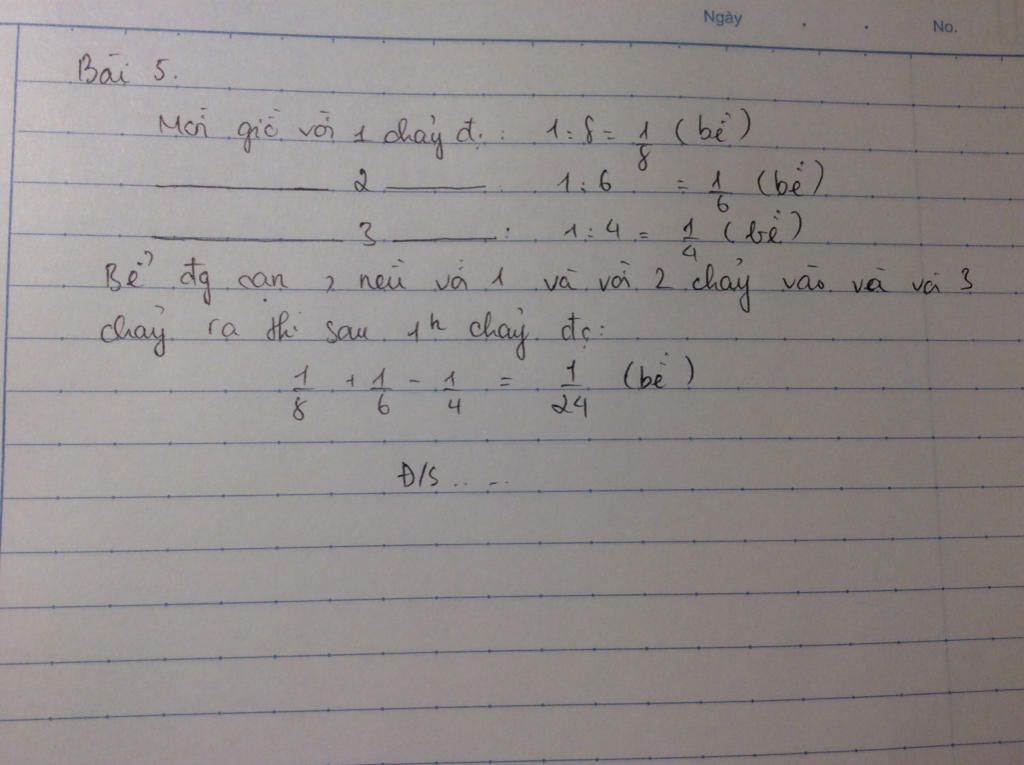 Ngày . . No.
Bài 5.
Mỗi giờ vòi 1 chảy đ: 1 : 8 = 1/8 (bể)
——— 2 ——— : 1 : 6 = 1/6 (bể)
——— 3 ——— : 1 : 4 = 1/4 (bể)
Bể đg cạn, nếu vòi 1 và vòi 2 chảy vào và vòi 3
chảy ra thì sau 1h chảy đc:
1/8 + 1/6 - 1/4 = 1/24 (bể)
Đ/S .. ..